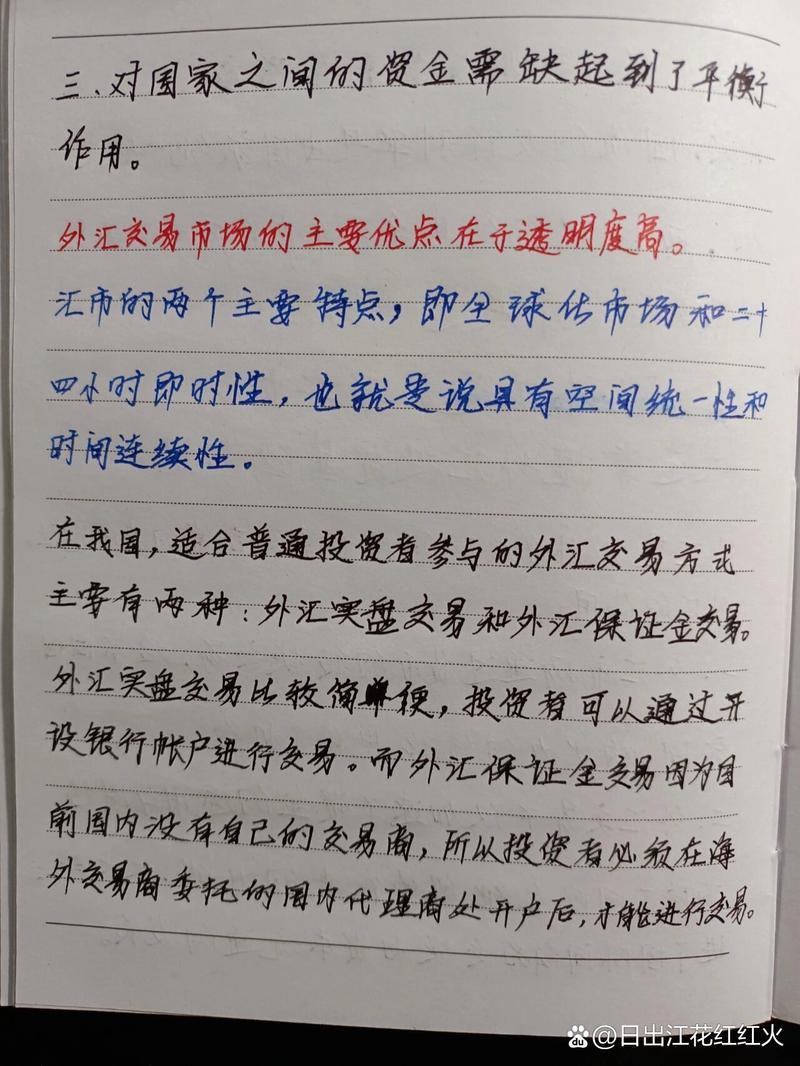 三、对国家之间的资金需缺起到了平衡
作用。
外汇交易市场的主要优点在于透明度高。
汇市的两个主要特点，即全球化市场和二十
四小时即时性，也就是说具有空间统一性和
时间连续性。
在我国，适合普通投资者参与的外汇交易方式
主要有两种：外汇实盘交易和外汇保证金交易。
外汇实盘交易比较简单便，投资者可以通过开
设银行帐户进行交易。而外汇保证金交易因为目
前国内没有自己的交易商，所以投资者必须在海
外交易商委托的国内代理商处开户后，才能进行交易。
Bai du @日出江花红红火